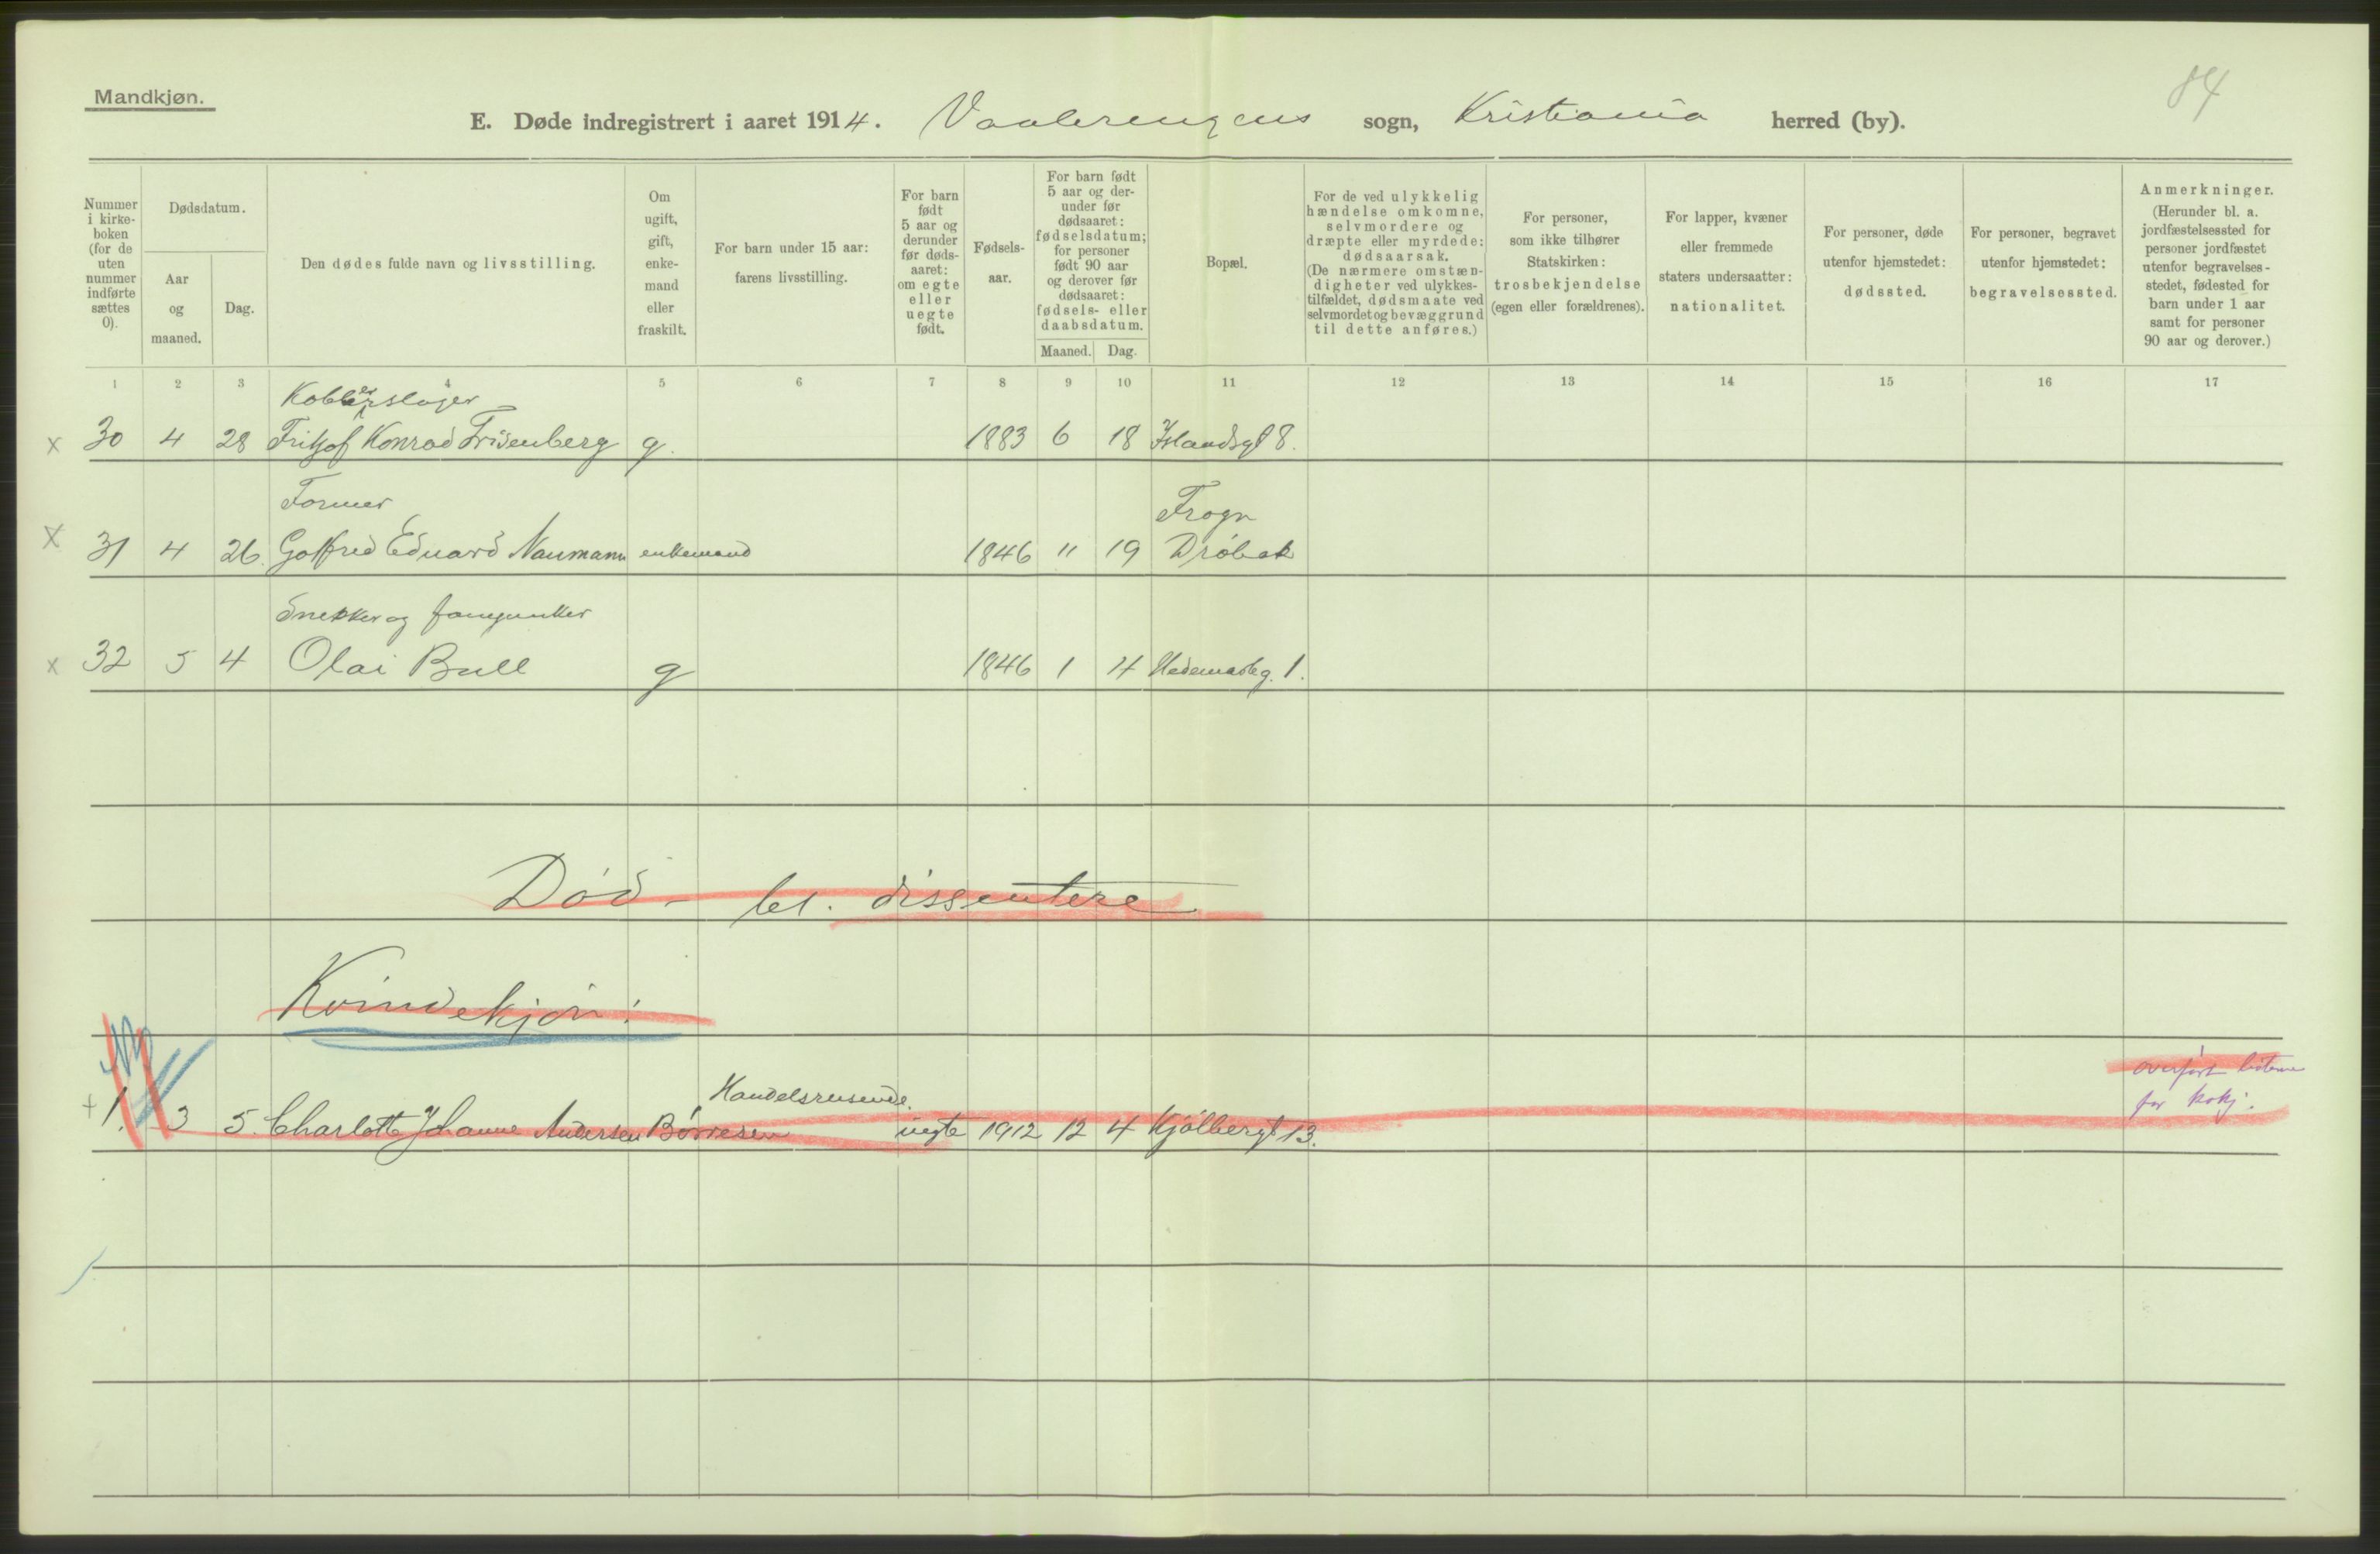 Mandkjøn.
84
E. Døde indregistrert i aaret 1914. Vaalerengens sogn, Kristiania herred (by).
Nummer i kirkeboken (for de uten nummer indførte sættes 0).
Dødsdatum.
Aar og maaned.
Dag.
Den dødes fulde navn og livsstilling.
Om ugift, gift, enkemand eller fraskilt.
For barn under 15 aar: farens livsstilling.
For barn født 5 aar og derunder før dødsaaret: om egte eller uegte født.
Fødselsaar.
For barn født 5 aar og derunder før dødsaaret: fødselsdatum; for personer født 90 aar og derover før dødsaaret: fødsels- eller daabsdatum.
Maaned. Dag.
Bopæl.
For de ved ulykkelig hændelse omkomne, selvmordere og dræpte eller myrdede: dødsaarsak. (De nærmere omstændigheter ved ulykkestilfældet, dødsmaate ved selvmordet og bevæggrund til dette anføres.)
For personer, som ikke tilhører Statskirken: trosbekjendelse (egen eller forældrenes).
For lapper, kvæner eller fremmede staters undersaatter: nationalitet.
For personer, døde utenfor hjemstedet: dødssted.
For personer, begravet utenfor hjemstedet: begravelsessted.
Anmerkninger. (Herunder bl. a. jordfæstelsessted for personer jordfæstet utenfor begravelsesstedet, fødested for barn under 1 aar samt for personer 90 aar og derover.)
1 2 3 4 5 6 7 8 9 10 11 12 13 14 15 16 17
Kobberslager
x 30 4 28 Fritjof Konrad Frisenberg g. 1883 6 18 Islandsgt 8.
Former Frogn
x 31 4 26. Gotfred Eduard Naumann enkemand 1846 11 19 Drøbak
Snekker og fanejunker
x 32 5 4 Olai Bull g 1846 1 4 Hedemarkg. 1.
Død - bl. dissentere
Kvindekjøn:
Handelsreisende. overført listerne
+ 1. 3 5. Charlotte Johanne Andersen Børresen uegte 1912 12 4 Kjølbergt 13. for kvkj.